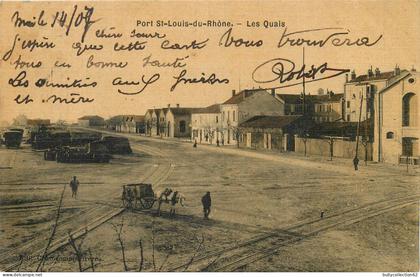 Port St-Louis-du-Rhône. - Les Quais
Mai le 14/07
Chère Sœur
J'espère que cette carte vous trouvera
tous en bonne santé
Les amitiés aux frères
et mère
collection42